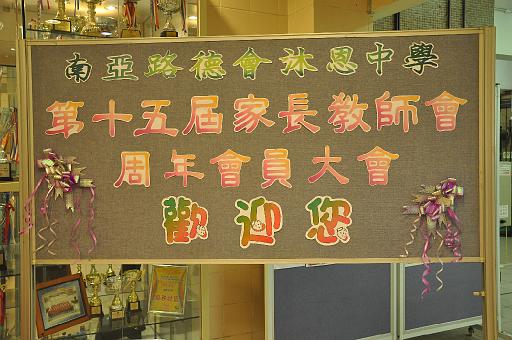 南亞路德會沐恩中學
第十五屆家長教師會
周年會員大會
歡迎您